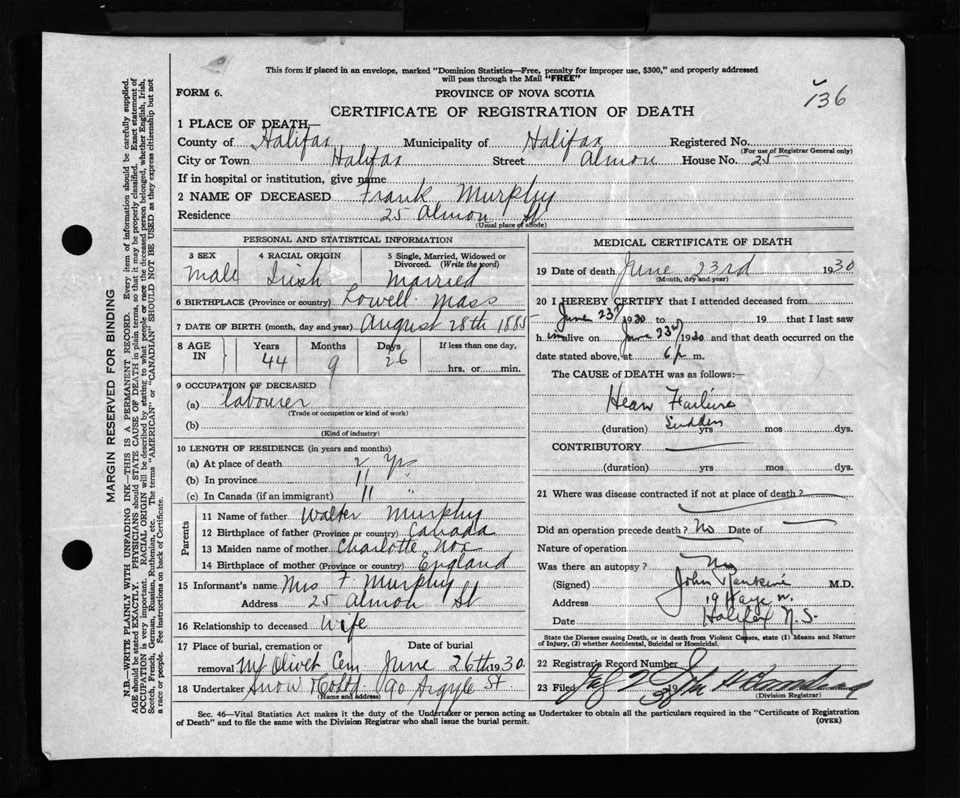 This form if placed in an envelope, marked "Dominion Statistics—Free, penalty for improper use, $300," and properly addressed
will pass through the Mail "FREE"
FORM 6.
PROVINCE OF NOVA SCOTIA
136
CERTIFICATE OF REGISTRATION OF DEATH
1 PLACE OF DEATH—
County of Halifax Municipality of Halifax Registered No.
(For use of Registrar General only)
City or Town Halifax Street Almon House No. 25
If in hospital or institution, give name
2 NAME OF DECEASED Frank Murphy
Residence 25 Almon St
(Usual place of abode)
PERSONAL AND STATISTICAL INFORMATION
3 SEX 4 RACIAL ORIGIN 5 Single, Married, Widowed or
Divorced. (Write the word)
Male Irish Married
6 BIRTHPLACE (Province or country) Lowell Mass
7 DATE OF BIRTH (month, day and year) August 28th 1885
8 AGE IN Years Months Days If less than one day,
44 9 26 hrs. or min.
9 OCCUPATION OF DECEASED
(a) labourer
(Trade or occupation or kind of work)
(b)
(Kind of industry)
10 LENGTH OF RESIDENCE (in years and months)
(a) At place of death 2 yr
(b) In province 11 "
(c) In Canada (if an immigrant) 11 "
Parents
11 Name of father Walter Murphy
12 Birthplace of father (Province or country) Canada
13 Maiden name of mother Charlotte Nox
14 Birthplace of mother (Province or country) England
15 Informant's name Mrs F. Murphy
Address 25 Almon St
16 Relationship to deceased Wife
17 Place of burial, cremation or Date of burial
removal Mt Olivet Cem June 26th 1930
18 Undertaker Snow & Co Ltd 90 Argyle St
(Name and address)
MEDICAL CERTIFICATE OF DEATH
19 Date of death June 23rd 1930
(Month, day and year)
20 I HEREBY CERTIFY that I attended deceased from
June 23rd 1930 to 19 that I last saw
him alive on June 23rd 1930 and that death occurred on the
date stated above, at 6 p m.
The CAUSE of DEATH was as follows:—
Heart Failure
Sudden
(duration) yrs mos dys.
CONTRIBUTORY
(duration) yrs mos dys.
21 Where was disease contracted if not at place of death?
Did an operation precede death? No Date of
Nature of operation
Was there an autopsy? No
(Signed) John Rankine M.D.
Address
Date Halifax N.S.
State the Disease causing Death, or in death from Violent Causes, state (1) Means and Nature
of Injury, (2) whether Accidental, Suicidal or Homicidal.
22 Registrar's Record Number
23 Filed John
(Division Registrar)
Sec. 46—Vital Statistics Act makes it the duty of the Undertaker or person acting as Undertaker to obtain all the particulars required in the "Certificate of Registration
of Death" and to file the same with the Division Registrar who shall issue the burial permit.
(OVER)
MARGIN RESERVED FOR BINDING
N.B.—WRITE PLAINLY WITH UNFADING INK—THIS IS A PERMANENT RECORD. Every item of information should be carefully supplied.
AGE should be stated EXACTLY. PHYSICIANS should STATE CAUSE OF DEATH in plain terms, so that it may be properly classified. Exact statement of
OCCUPATION is very important. RACIAL ORIGIN will be described by stating to what people or race the deceased person belonged, whether English, Irish,
Scotch, French, German, Russian, Ruthenian, etc. The terms "AMERICAN" or "CANADIAN" SHOULD NOT BE USED as they express citizenship but not
a race or people. See instructions on back of Certificate.